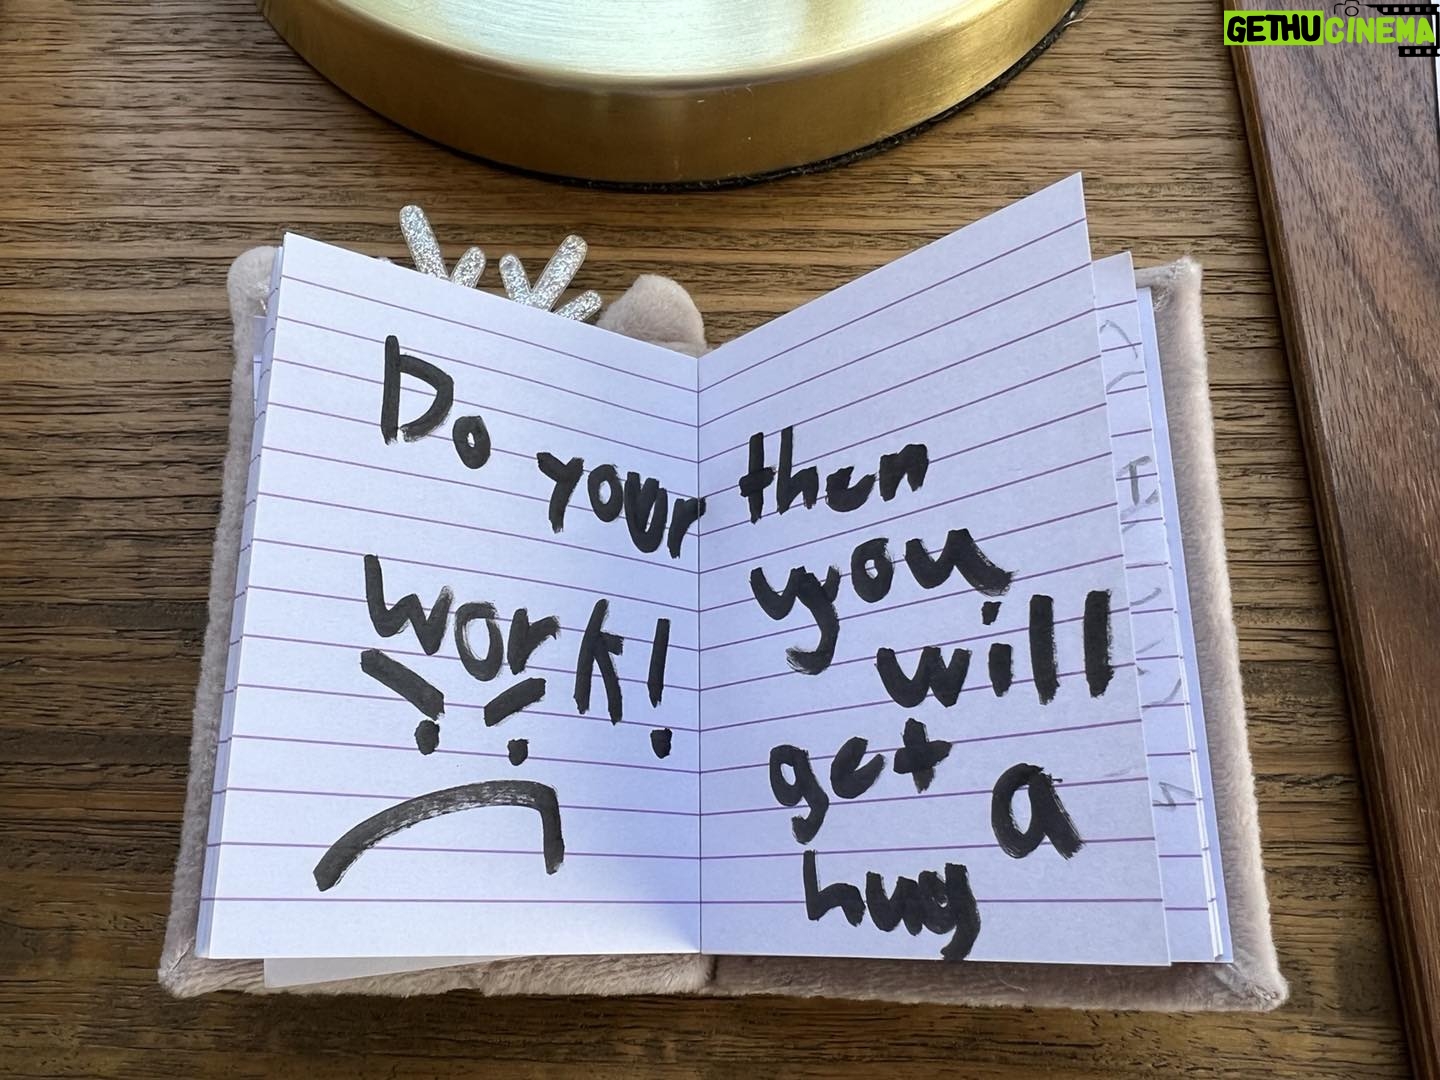 GETHUCINEMA
Do your
work!
then
you
will
get a
hug